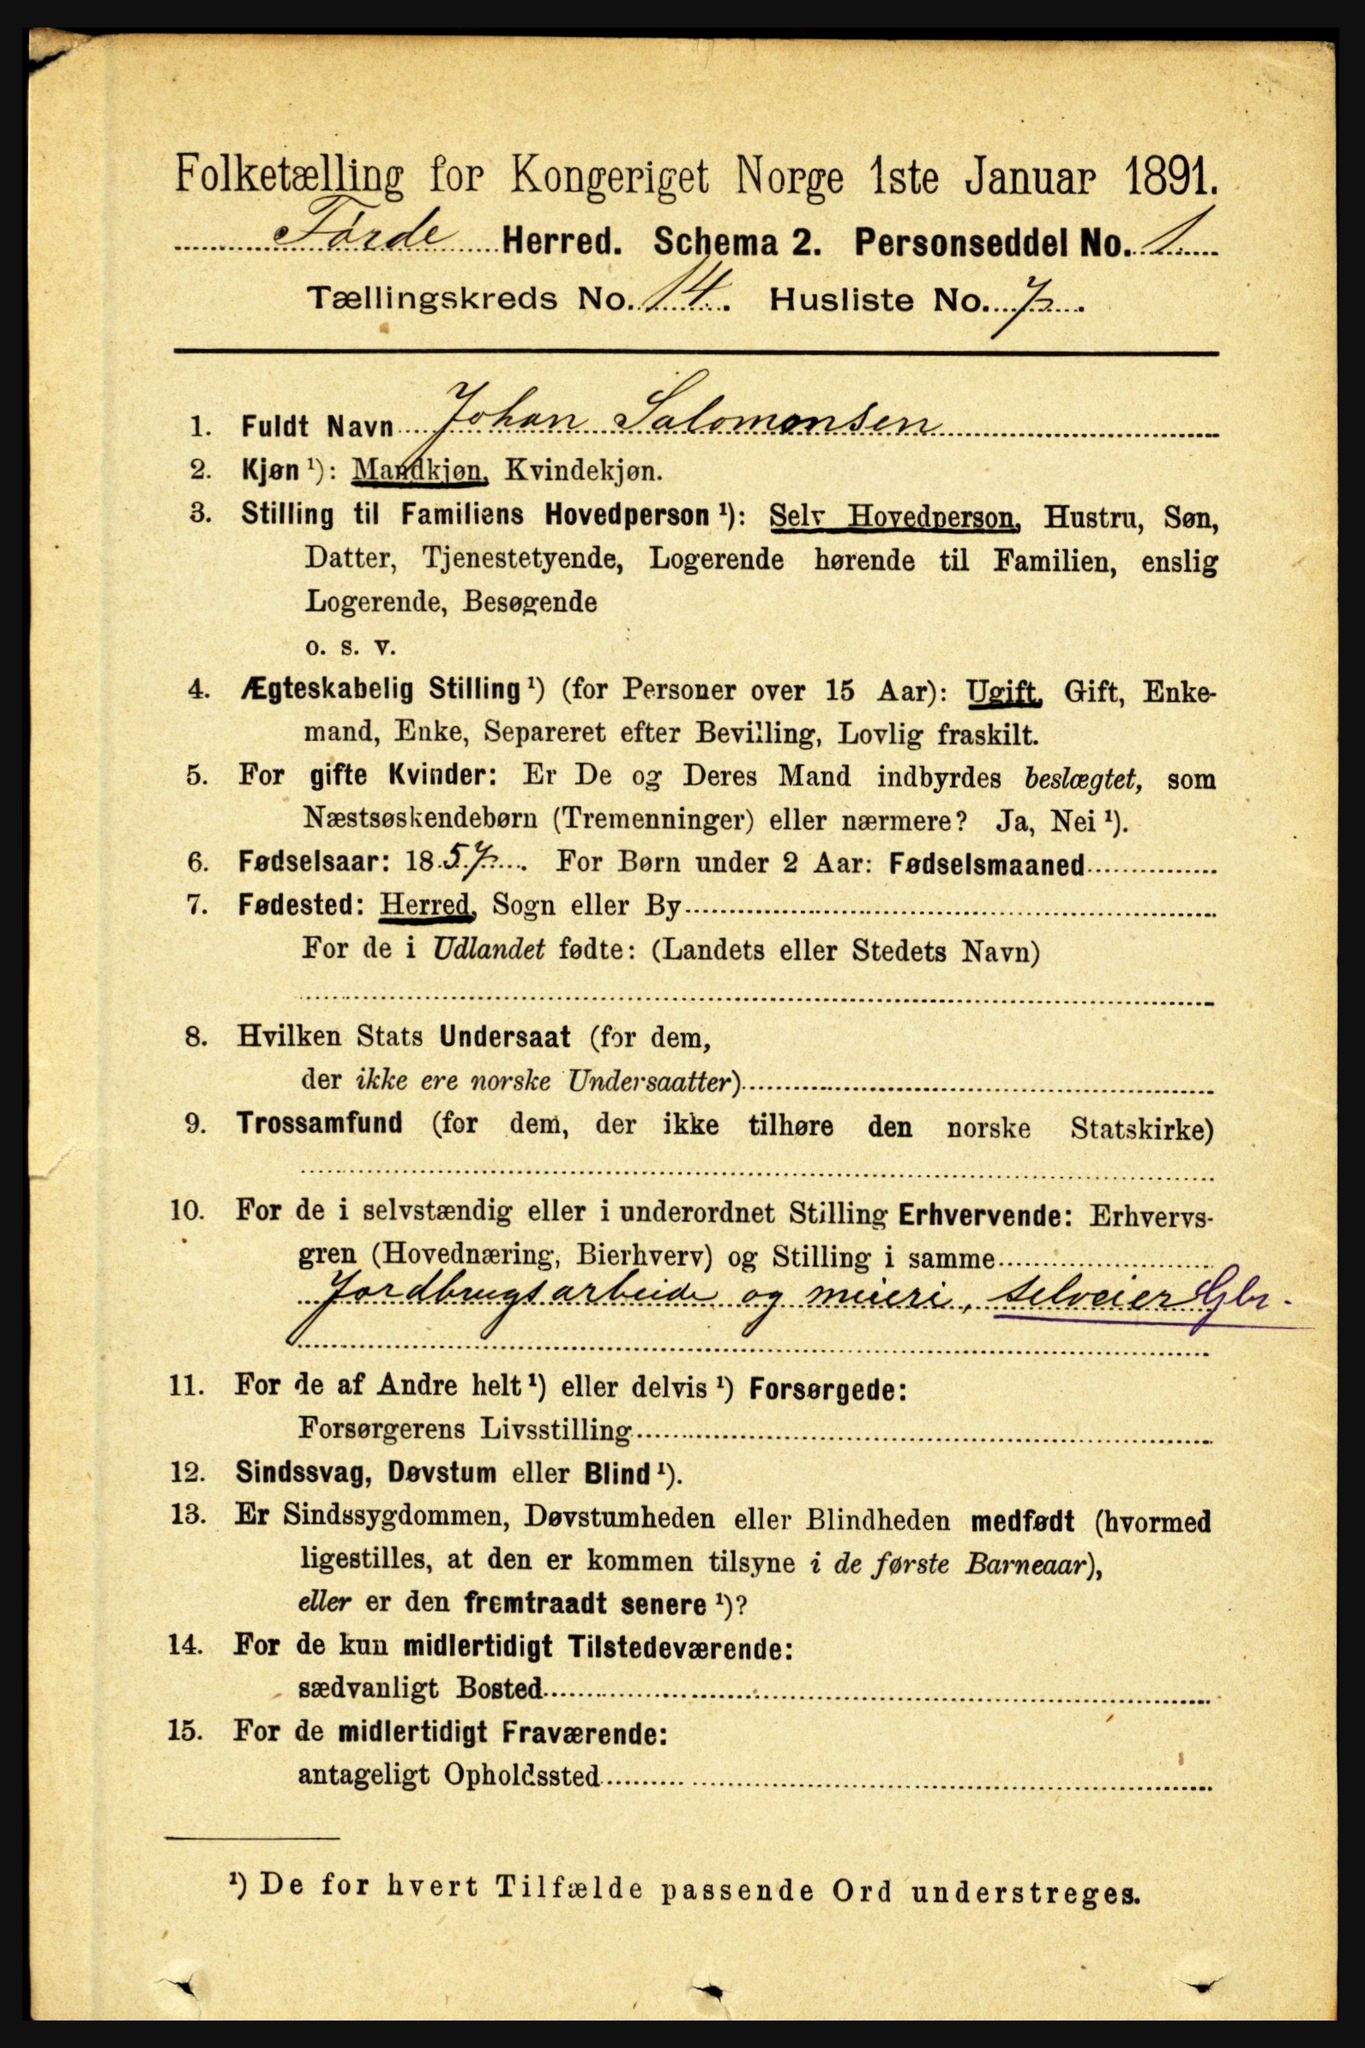 Folketælling for Kongeriget Norge 1ste Januar 1891.
Førde Herred. Schema 2. Personseddel No. 1
Tællingskreds No. 14. Husliste No. 7.
1. Fuldt Navn Johan Salomonsen
2. Kjøn ¹): Mandkjøn, Kvindekjøn.
3. Stilling til Familiens Hovedperson ¹): Selv Hovedperson, Hustru, Søn,
Datter, Tjenestetyende, Logerende hørende til Familien, enslig
Logerende, Besøgende
o. s. v.
4. Ægteskabelig Stilling ¹) (for Personer over 15 Aar): Ugift, Gift, Enke-
mand, Enke, Separeret efter Bevilling, Lovlig fraskilt.
5. For gifte Kvinder: Er De og Deres Mand indbyrdes beslægtet, som
Næstsøskendebørn (Tremenninger) eller nærmere? Ja, Nei ¹).
6. Fødselsaar: 1857. For Børn under 2 Aar: Fødselsmaaned
7. Fødested: Herred, Sogn eller By
For de i Udlandet fødte: (Landets eller Stedets Navn)
8. Hvilken Stats Undersaat (for dem,
der ikke ere norske Undersaatter)
9. Trossamfund (for dem, der ikke tilhøre den norske Statskirke)
10. For de i selvstændig eller i underordnet Stilling Erhvervende: Erhvervs-
gren (Hovednæring, Bierhverv) og Stilling i samme
Jordbrugsarbeide og meieri, selveier Gbr.
11. For de af Andre helt ¹) eller delvis ¹) Forsørgede:
Forsørgerens Livsstilling
12. Sindssvag, Døvstum eller Blind ¹).
13. Er Sindssygdommen, Døvstumheden eller Blindheden medfødt (hvormed
ligestilles, at den er kommen tilsyne i de første Barneaar),
eller er den fremtraadt senere ¹)?
14. For de kun midlertidigt Tilstedeværende:
sædvanligt Bosted
15. For de midlertidigt Fraværende:
antageligt Opholdssted
¹) De for hvert Tilfælde passende Ord understreges.